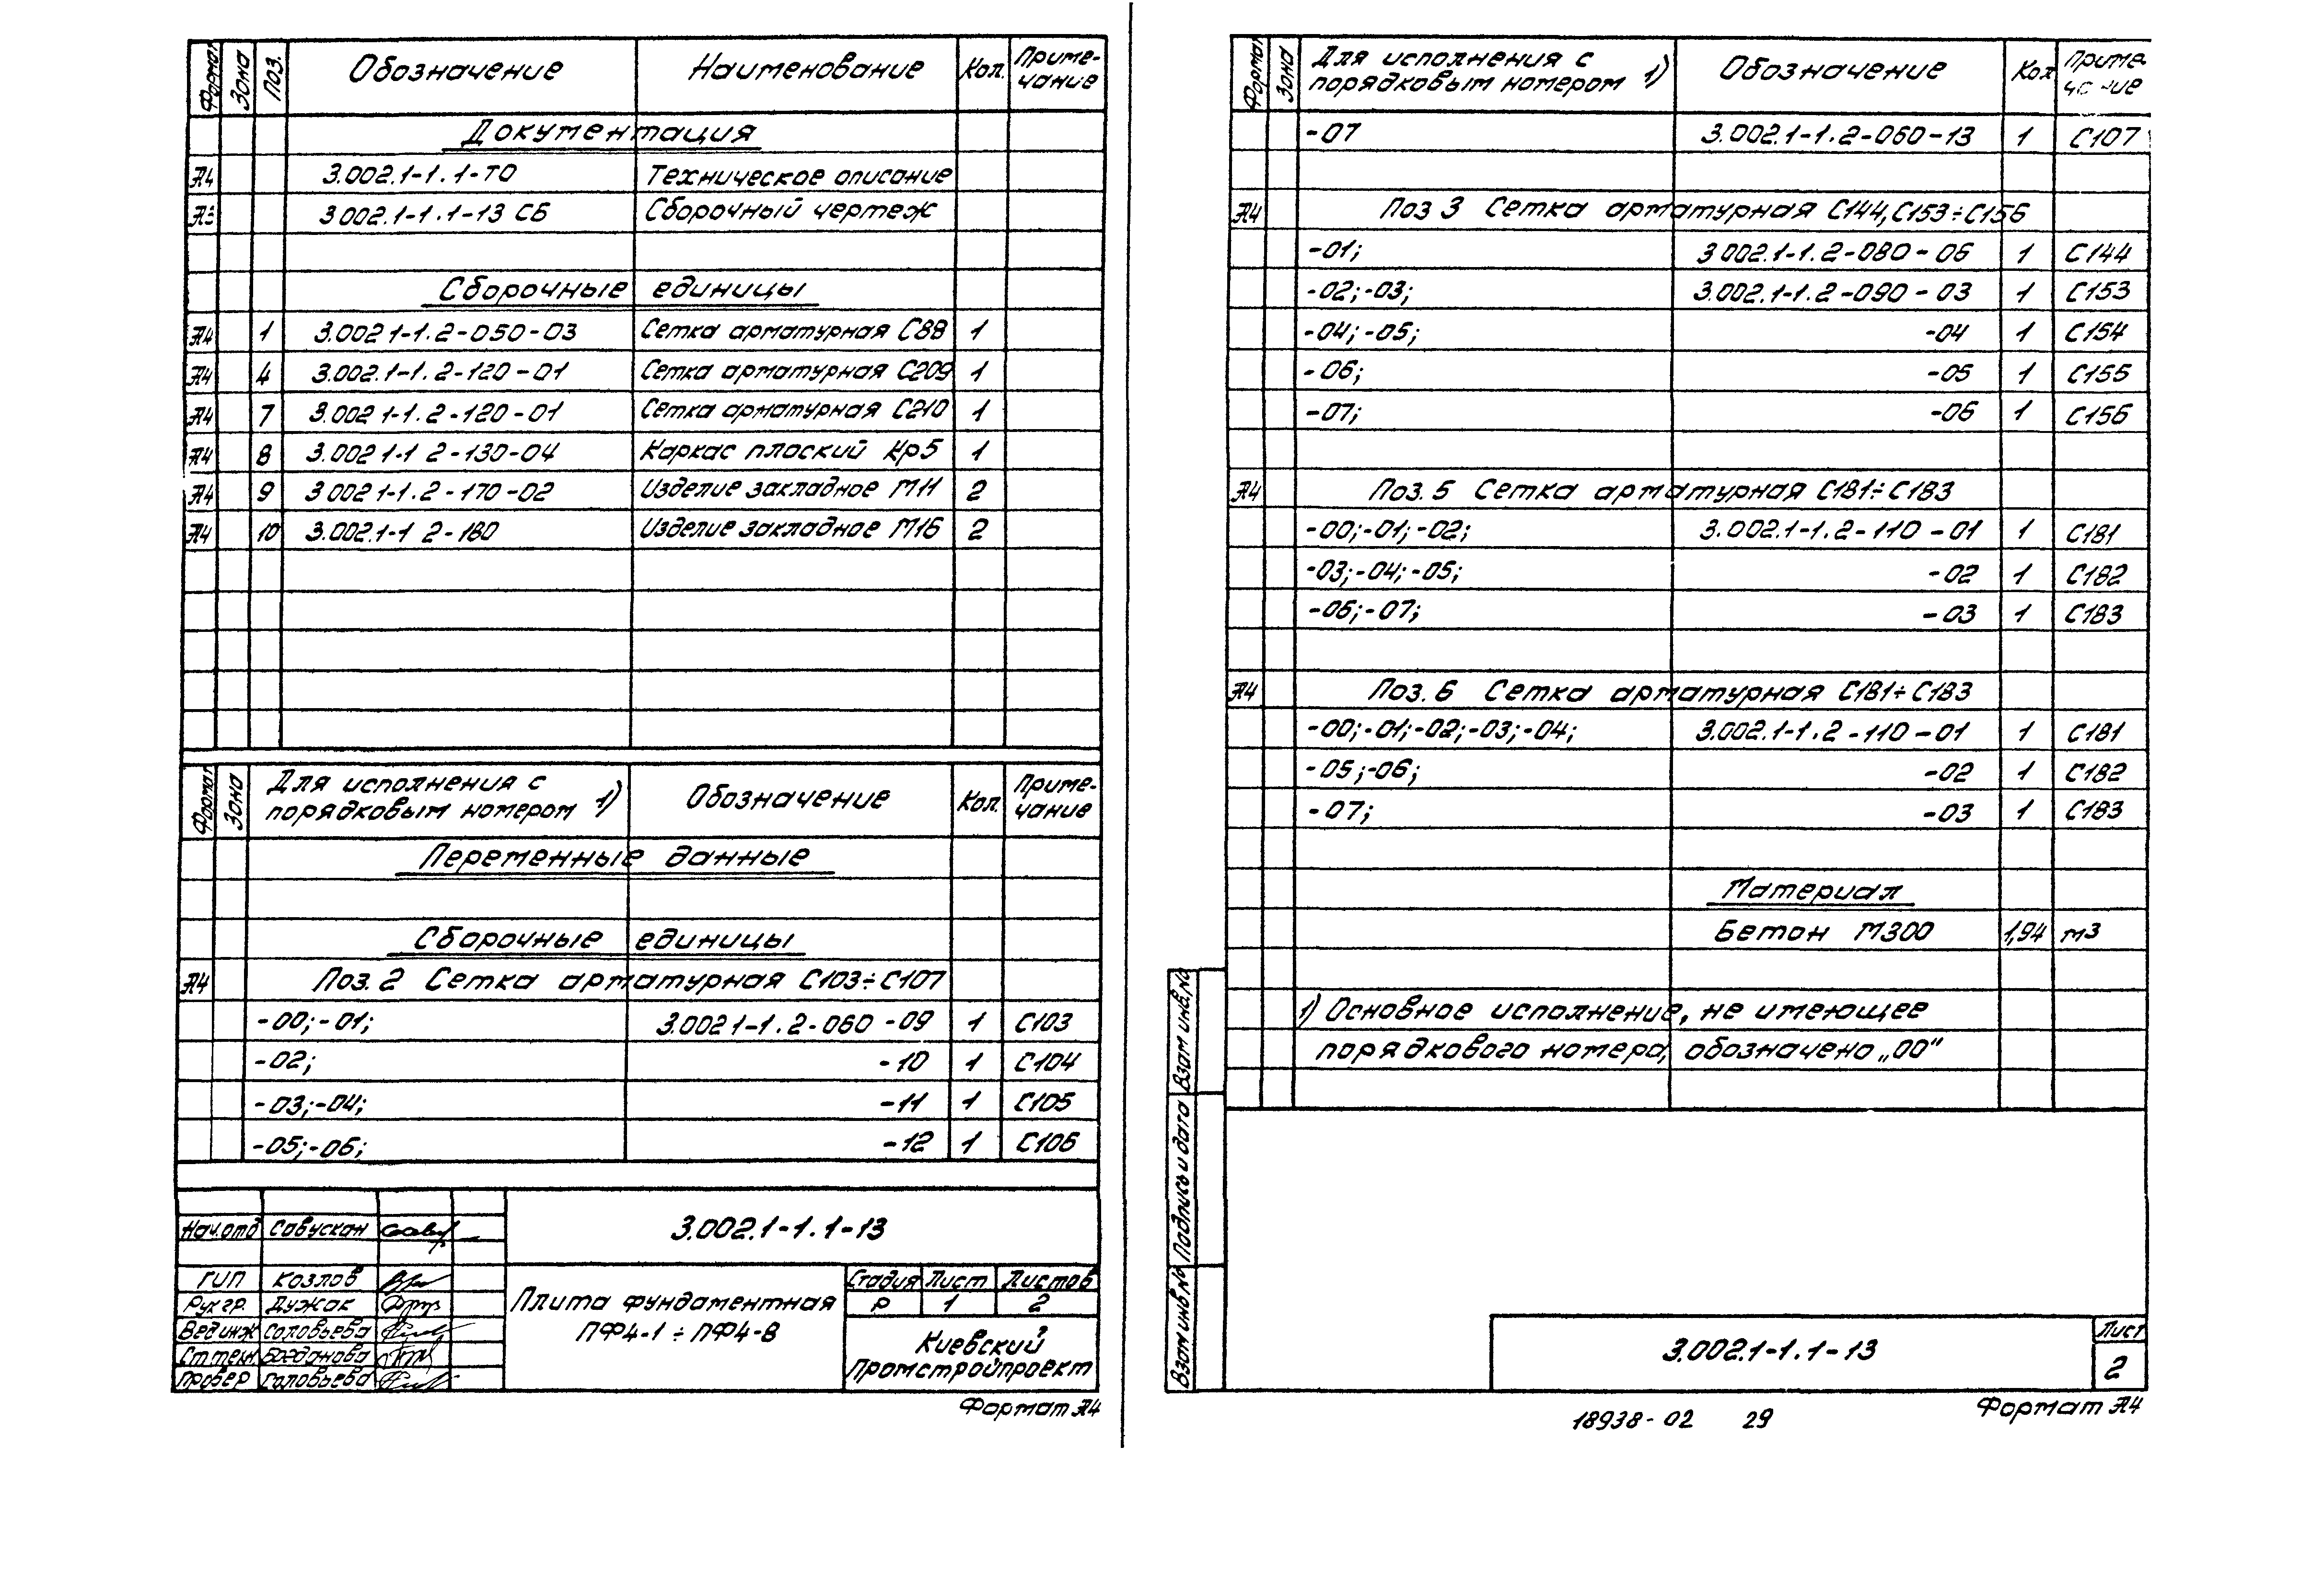 Формат Зона Поз. Обозначение Наименование Кол. Приме-чание
Документация
А4 3.002.1-1.1-ТО Техническое описание
А3 3.002.1-1.1-13 СБ Сборочный чертеж
Сборочные единицы
А4 1 3.002 1-1.2-050-03 Сетка арматурная С88 1
А4 4 3.002.1-1.2-120-01 Сетка арматурная С209 1
А4 7 3.002 1-1.2-120-01 Сетка арматурная С210 1
А4 8 3.002 1-1 2-130-04 Каркас плоский Кр5 1
А4 9 3 002 1-1.2-170-02 Изделие закладное М11 2
А4 10 3.002.1-1 2-180 Изделие закладное М16 2
Формат Зона Для исполнения с порядковым номером 1) Обозначение Кол. Приме-чание
Переменные данные
Сборочные единицы
А4 Поз. 2 Сетка арматурная С103÷С107
-00;-01; 3.002 1-1.2-060-09 1 С103
-02; -10 1 С104
-03;-04; -11 1 С105
-05;-06; -12 1 С106
3.002.1-1.1-13
Нач.отд Савускан
ГИП Козлов
Рук гр. Дужак
Вед инж Соловьева
Ст техн Богданова
Провер Соловьева
Плита фундаментная
ПФ4-1÷ПФ4-8
Стадия Лист Листов
Р 1 2
Киевский
Промстройпроект
Формат А4
Формат Зона Для исполнения с порядковым номером 1) Обозначение Кол Приме-ча ние
-07 3.002.1-1.2-060-13 1 С107
А4 Поз 3 Сетка арматурная С144, С153÷С156
-01; 3.002.1-1.2-080-06 1 С144
-02;-03; 3.002.1-1.2-090-03 1 С153
-04;-05; -04 1 С154
-06; -05 1 С155
-07; -06 1 С156
А4 Поз. 5 Сетка арматурная С181÷С183
-00;-01;-02; 3.002.1-1.2-110-01 1 С181
-03;-04;-05; -02 1 С182
-06;-07; -03 1 С183
А4 Поз. 6 Сетка арматурная С181÷С183
-00;-01;-02;-03;-04; 3.002.1-1.2-110-01 1 С181
-05;-06; -02 1 С182
-07; -03 1 С183
Материал
Бетон М300 1,94 м3
1) Основное исполнение, не имеющее
порядкового номера, обозначено „00"
Взам инв.№
Подпись и дата
Взам инв №
3.002.1-1.1-13
Лист
2
18938-02 29
Формат А4